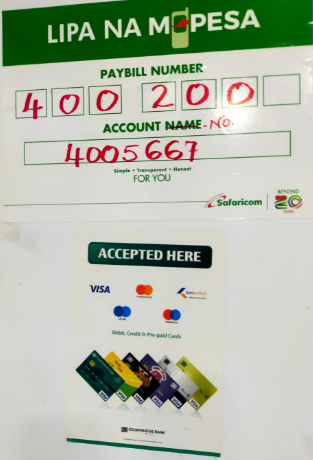 LIPA NA M-PESA
PAYBILL NUMBER
400 200
ACCOUNT NAME - No.
4005667
Simple • Transparent • Honest
FOR YOU
Safaricom
BEYOND
20
YEARS
ACCEPTED HERE
VISA
Debit, Credit & Pre-paid Cards
VISA VISA VISA VISA VISA
CO-OPERATIVE BANK